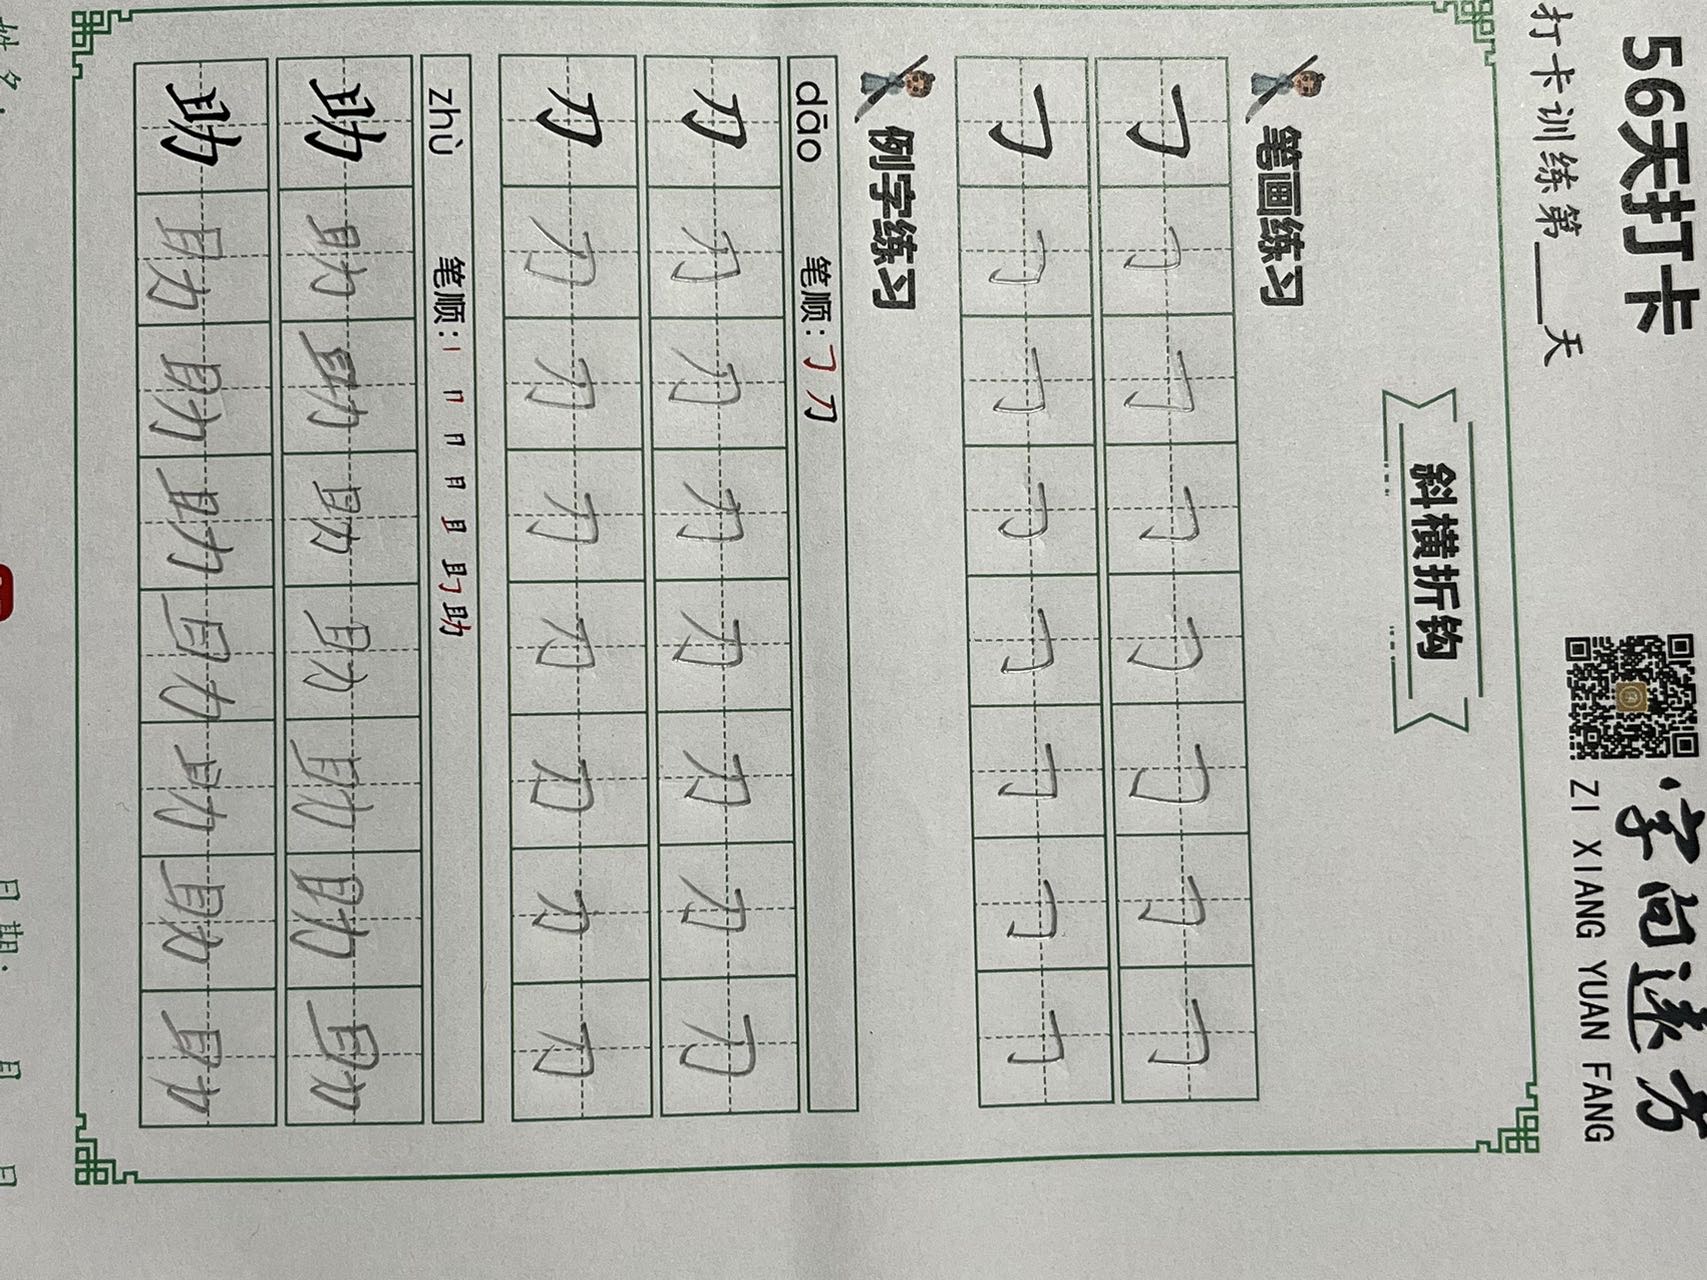 56天打卡
字尚遠方
ZI XIANG YUAN FANG
打卡训练第___天
斜横折钩
笔画练习
㇆ ㇆ ㇆ ㇆ ㇆ ㇆ ㇆ ㇆
㇆ ㇆ ㇆ ㇆ ㇆ ㇆ ㇆ ㇆
例字练习
dāo 笔顺: ㇆ 刀
刀 刀 刀 刀 刀 刀 刀 刀
刀 刀 刀 刀 刀 刀 刀 刀
zhù 笔顺: 丨 𠃍 助
助 助 助 助 助 助 助 助
助 助 助 助 助 助 助 助
姓名: 日期: 月 日